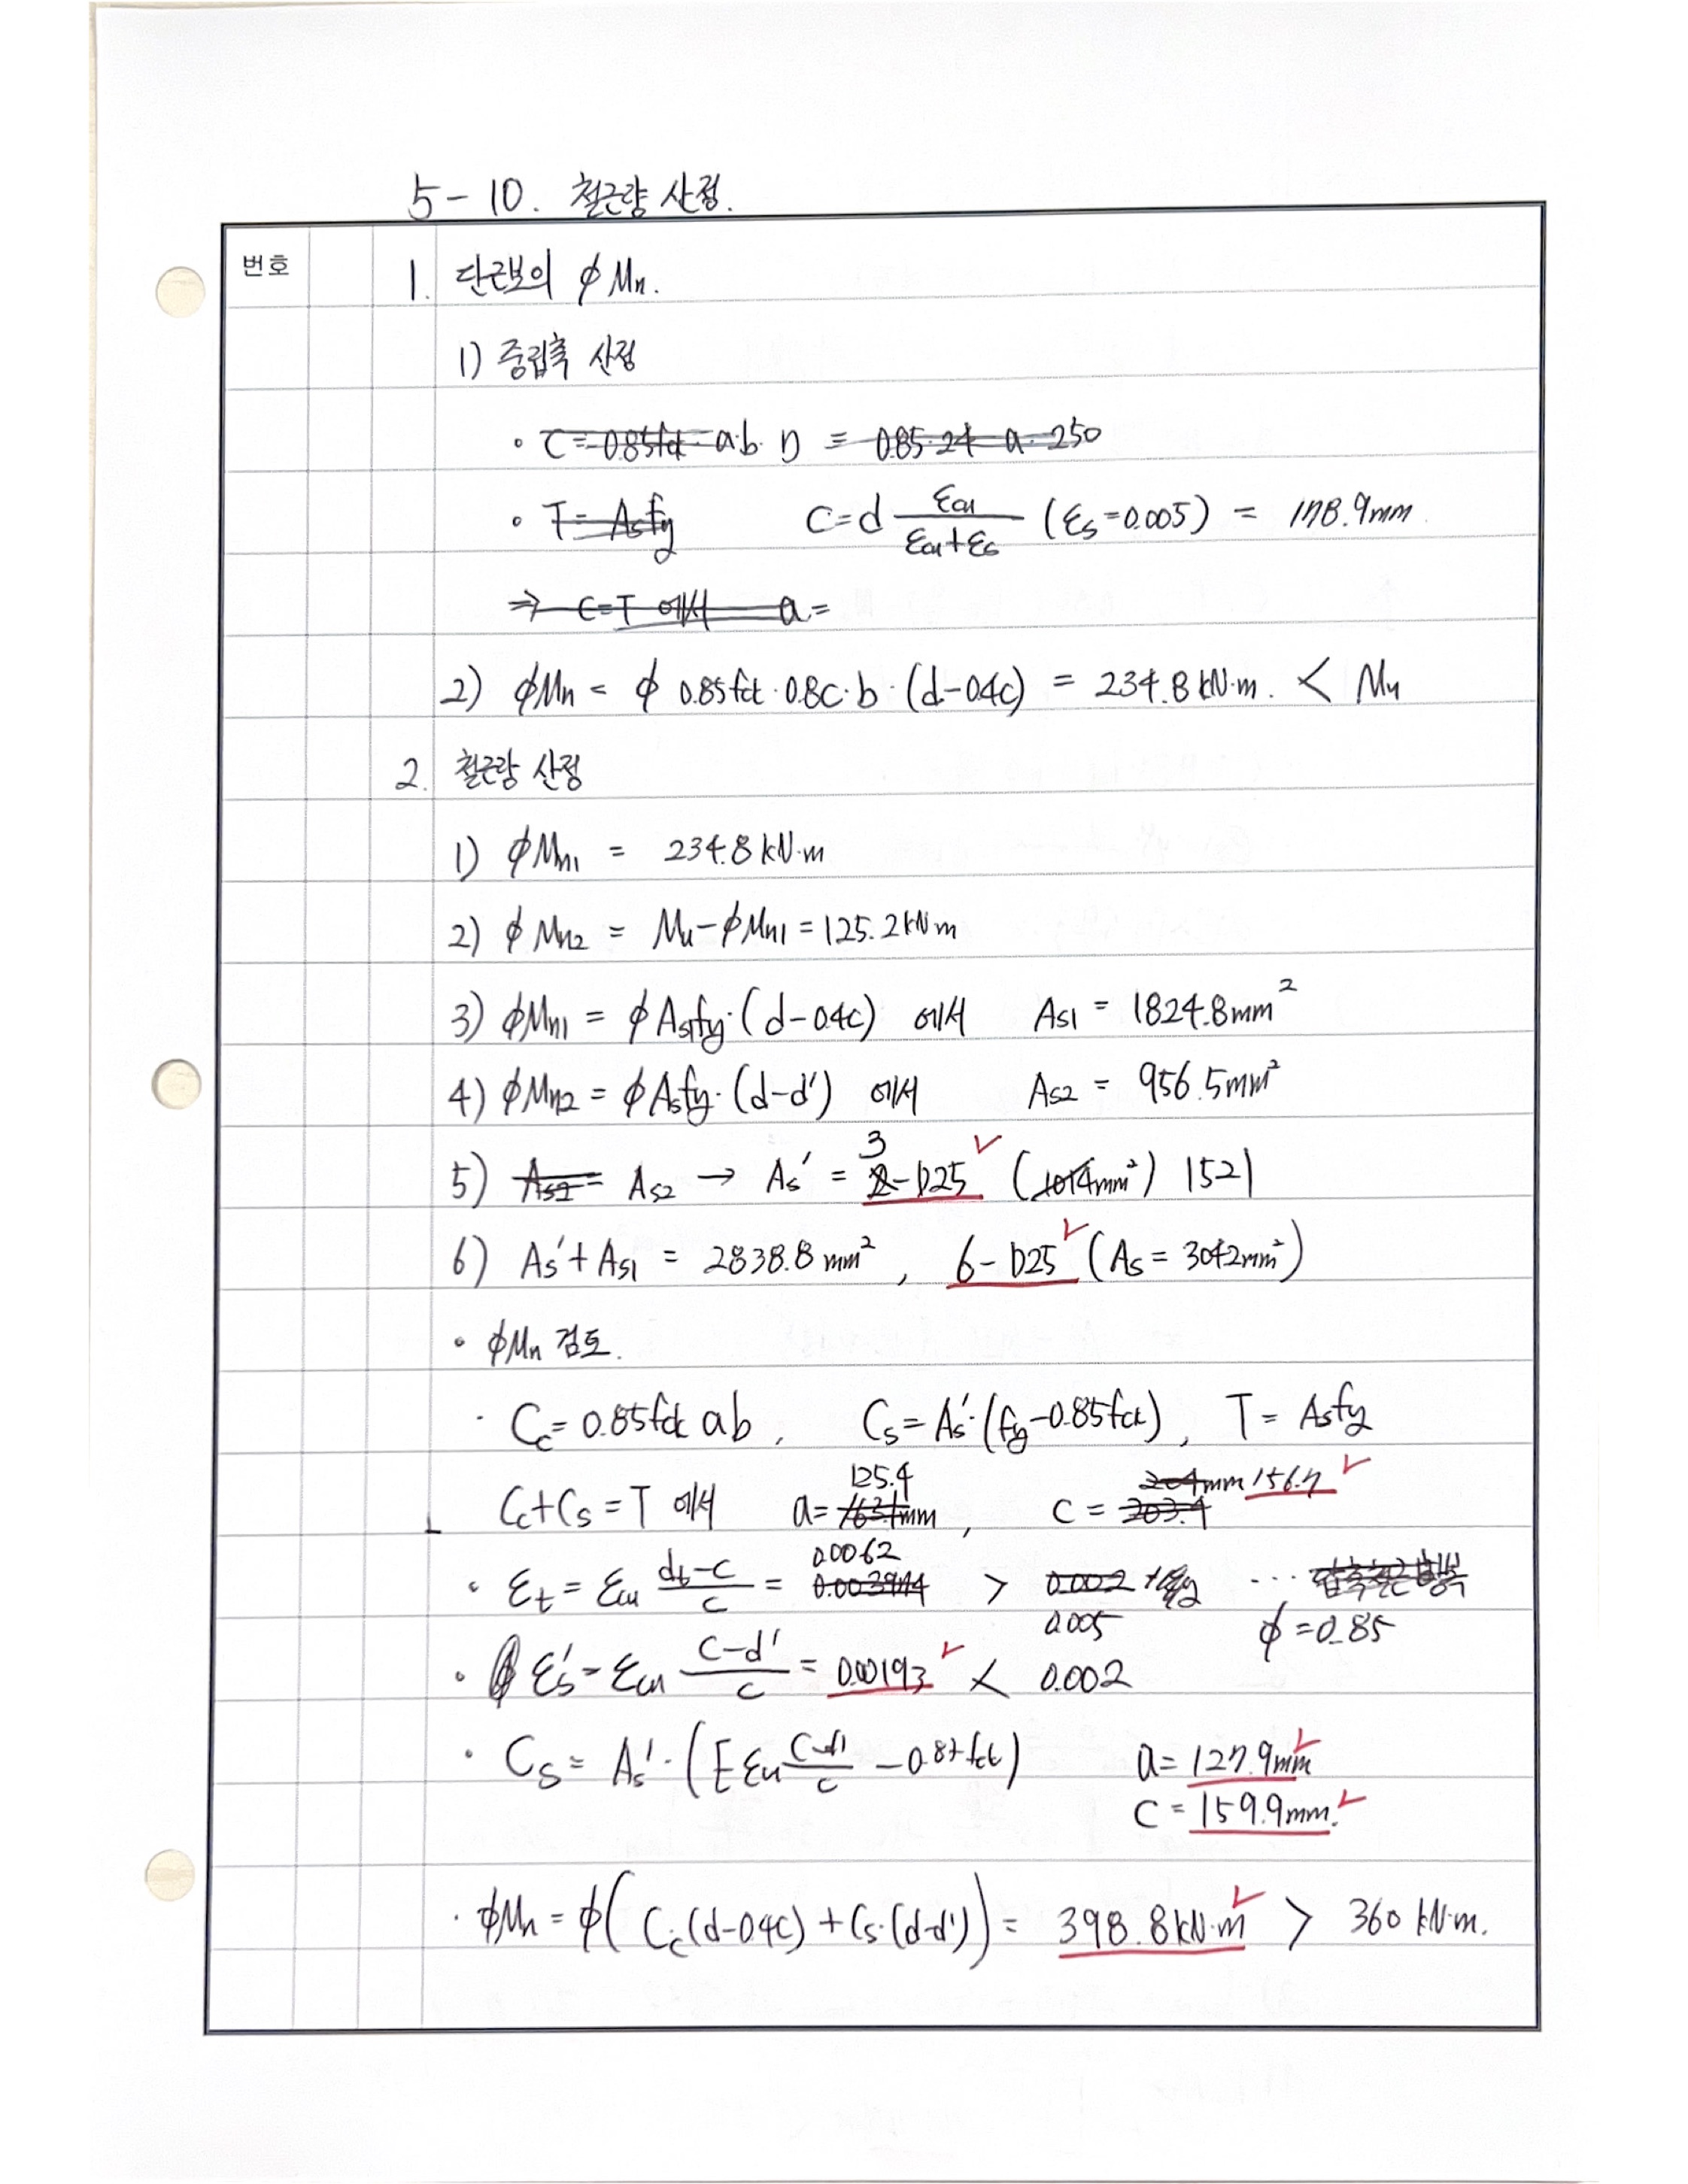 5-10. 철근량 산정.
번호
1. 단근보의 φMn.
1) 중립축 산정
• C=0.85fck a·b· D = 0.85·24 a·250
• T=Asfy C=d εcu/(εcu+εs) (εs=0.005) = 178.9mm
⇒ C=T 에서 a=
2) φMn = φ 0.85fck·0.8c·b·(d-0.4c) = 234.8kN·m. < Mu
2. 철근량 산정
1) φMn1 = 234.8kN·m
2) φMn2 = Mu-φMn1 = 125.2kN·m
3) φMn1 = φAs1fy·(d-0.4c) 에서 As1 = 1824.8mm²
4) φMn2 = φAsfy·(d-d') 에서 As2 = 956.5mm²
5) As2= As2 → As' = 3 2-D25 ✓ (1014mm²) 1521
6) As'+As1 = 2838.8mm², 6-D25 ✓ (As = 3042mm²)
• φMn 검토.
· Cc=0.85fck ab, Cs=As'·(fy-0.85fck), T=Asfy
Cc+Cs=T 에서 a= 125.4 163.1mm, c = 204mm 203.9 156.7 ✓
• εt = εcu (dt-c)/c = 0.0062 0.003944 > 0.002 0.005 ... φ=0.85
• εs' = εcu (c-d')/c = 0.00193 ✓ < 0.002
• Cs = As'·(E εcu (c-d')/c - 0.85fck) a= 127.9mm ✓
c = 159.9mm. ✓
· φMn = φ(Cc(d-0.4c)+Cs·(d-d')) = 398.8kN·m ✓ > 360kN·m.